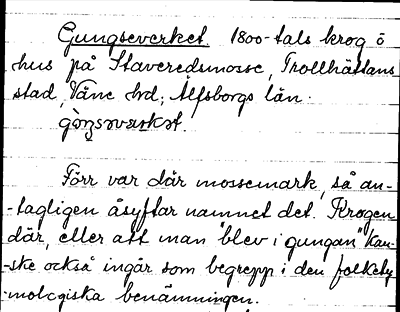 Gungseverket. 1800-tals krog o
hus på Staveredsmosse, Trollhättans
stad, Väne hrd, Älfsborgs län.
Förr var där mossemark, så an-
-tagligen åsyftar namnet det. Krogen
där, eller att man "blev i gungan" kan-
-ske också ingår som begrepp i den folkety
-mologiska benämningen.